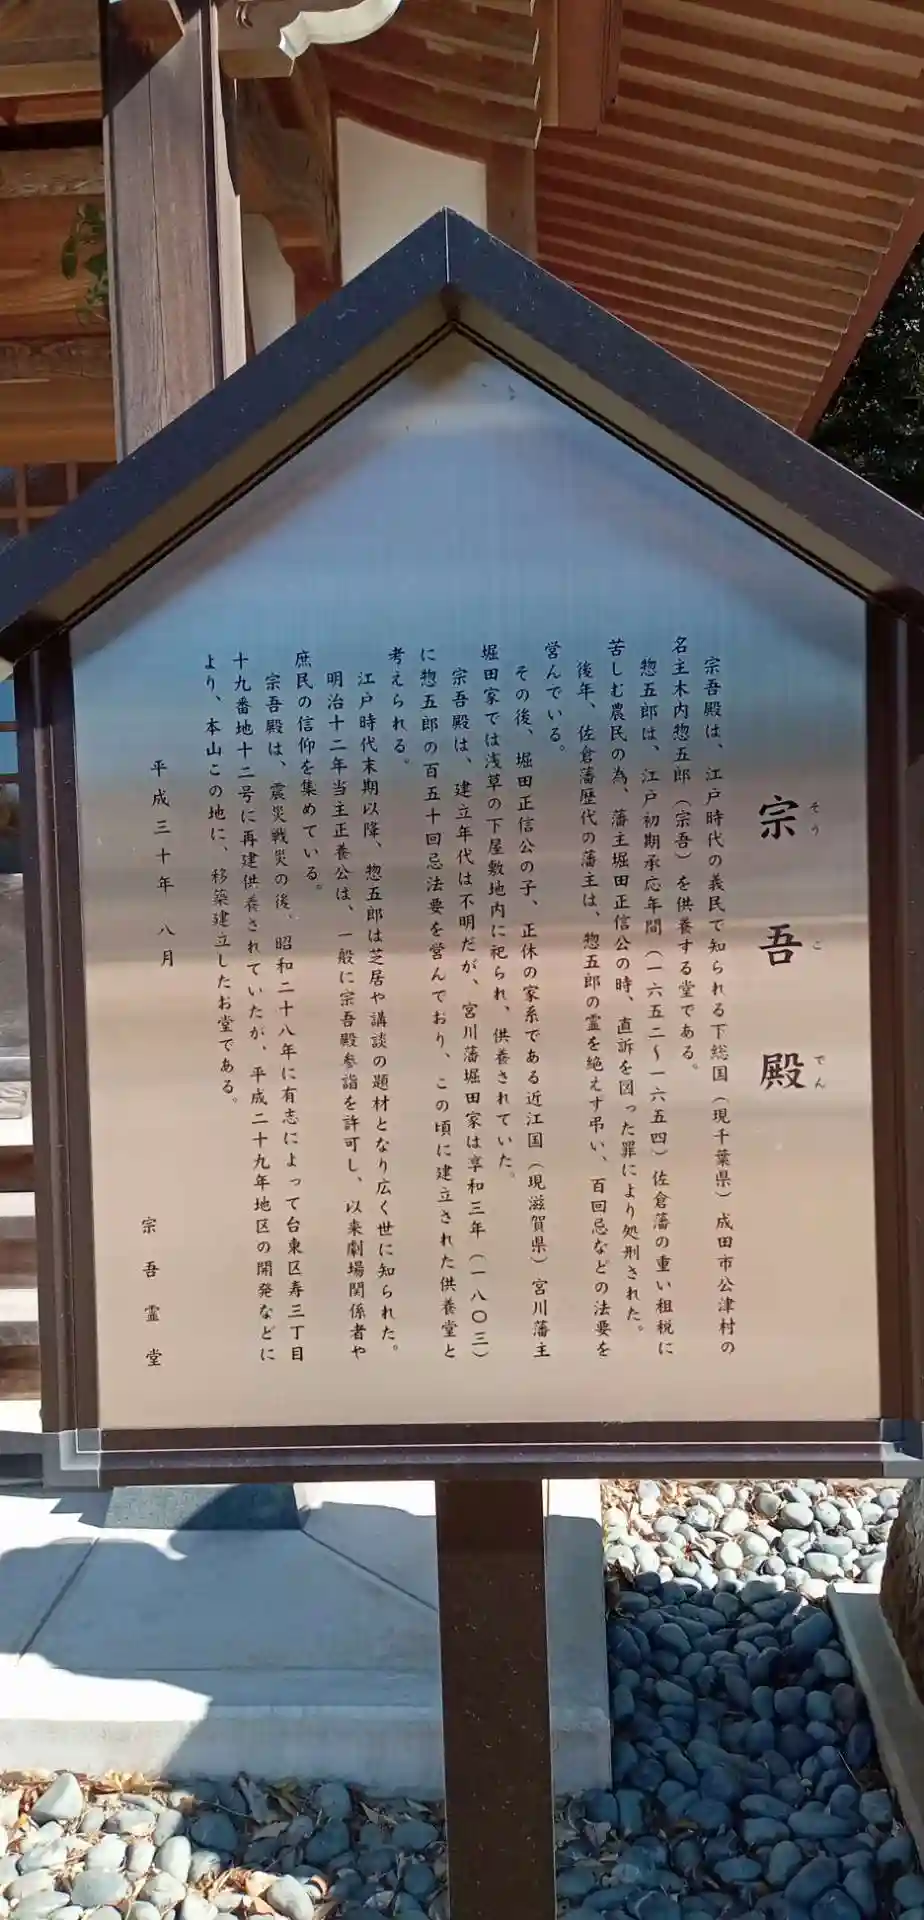 宗吾殿
そうごでん
宗吾殿は、江戸時代の義民で知られる下総国（現千葉県）成田市公津村の
名主木内惣五郎（宗吾）を供養する堂である。
惣五郎は、江戸初期承応年間（一六五二〜一六五四）佐倉藩の重い租税に
苦しむ農民の為、藩主堀田正信公の時、直訴を図った罪により処刑された。
後年、佐倉藩歴代の藩主は、惣五郎の霊を絶えず弔い、百回忌などの法要を
営んでいる。
その後、堀田正信公の子、正休の家系である近江国（現滋賀県）宮川藩主
堀田家では浅草の下屋敷地内に祀られ、供養されていた。
宗吾殿は、建立年代は不明だが、宮川藩堀田家は享和三年（一八〇三）
に惣五郎の百五十回忌法要を営んでおり、この頃に建立された供養堂と
考えられる。
江戸時代末期以降、惣五郎は芝居や講談の題材となり広く世に知られた。
明治十二年当主正養公は、一般に宗吾殿参詣を許可し、以来劇場関係者や
庶民の信仰を集めている。
宗吾殿は、震災戦災の後、昭和二十八年に有志によって台東区寿三丁目
十九番地十二号に再建供養されていたが、平成二十九年地区の開発などに
より、本山この地に、移築建立したお堂である。
平成三十年八月
宗吾霊堂